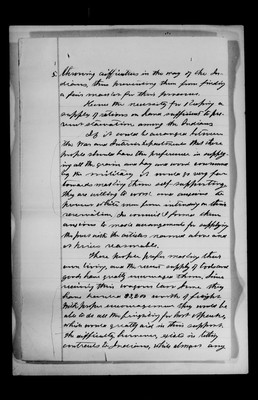 5. throwing difficulties in the way of the In-
dians, thus preventing them from finding
a fair market for their produce.
Hence the necessity for keeping a
supply of rations on hand sufficient to pre-
vent starvation among the Indians
If it could be arranged between
the War and Interior Departments that these
people should have the preference in supply-
ing all the grain and hay and wood consumed
by the military it would go very far
towards making them self-supporting
they are willing to work and anxious to
prevent white men from intruding on their
reservation. In council I found them
anxious to make arrangements for supplying
the post with the articles named above and
at prices reasonable.
These people prefer making their
own living, and the recent supply of tools and
goods has greatly encouraged them, since
receiving their wagons last June they
have earned $2,500 worth of freight
With proper encouragement they would be
able to do all the freighting for
which would greatly aid in their support.
The difficulty however, exists in letting
contracts to Indians, while almost any